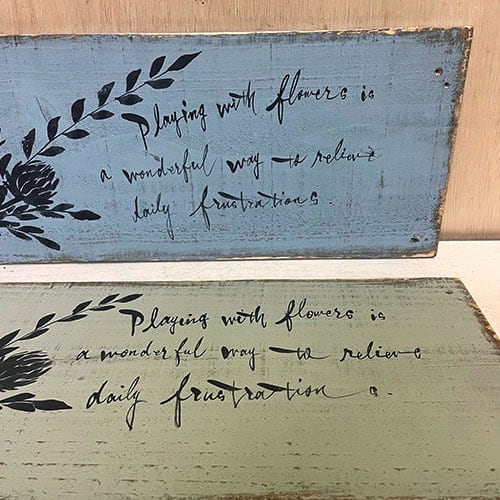 Playing with flowers is
a wonderful way to relieve
daily frustrations.
Playing with flowers is
a wonderful way to relieve
daily frustrations.